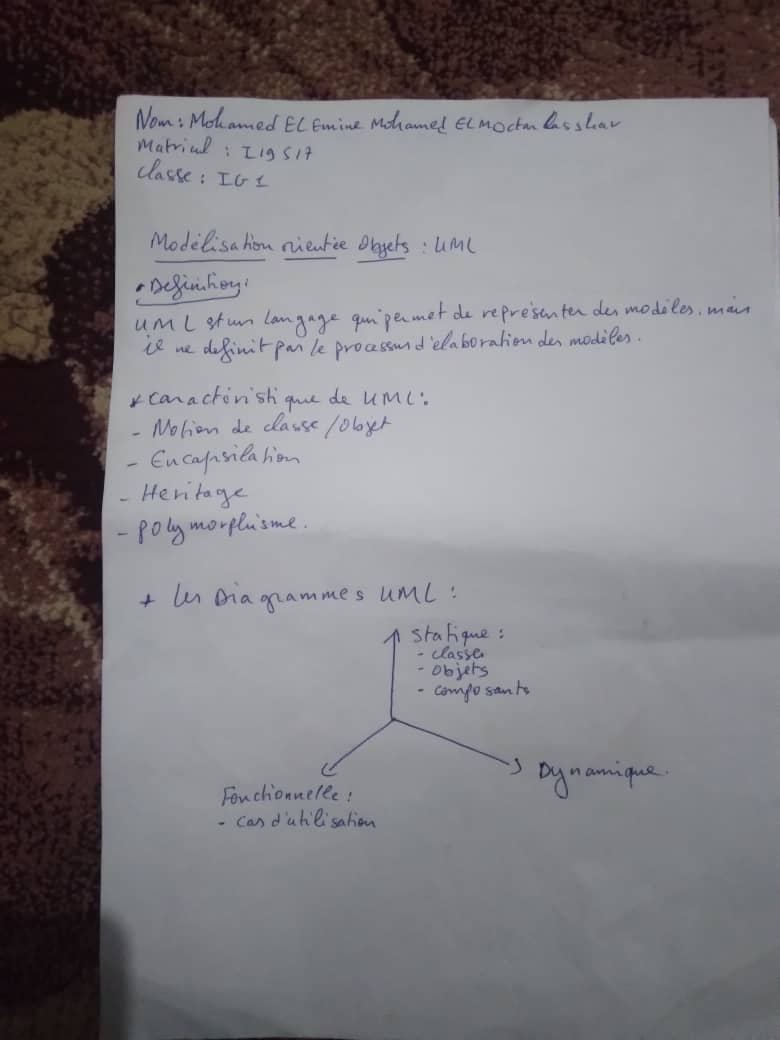 Nom : Mohamed EL Emine Mohamed EL Moctar
Matricul : I19517
classe : IG1
Modélisation orientée Objets : UML
• Definition :
UML est un langage qui permet de représenter des modèles, mais
il ne definit pas le processus d'élaboration des modèles.
* Caractéristique de UML :
- Notion de classe / Objet
- Encapsilation
- Heritage
- polymorphisme.
* les Diagrammes UML :
Statique :
- classe
- objets
- composants
Dynamique.
Fonctionnelle :
- cas d'utilisation